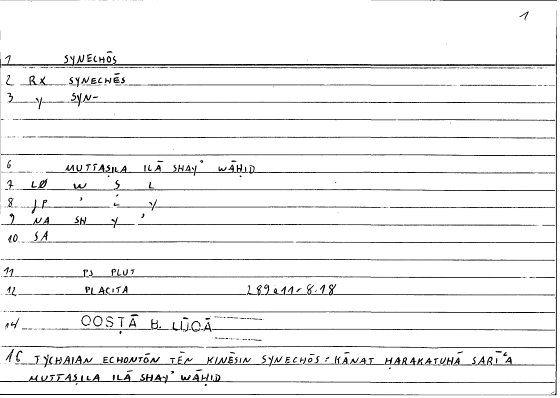 1
1 SYNECHŌS
2 RX SYNECHĒS
3 Y SYN-
6 MUTTAṢILA ILĀ SHAYʾ WĀḤID
7 LØ W Ṣ L
8 JP ʾ L Y
9 NA SH Y ʾ
10 SA
11 PS PLUT
12 PLACITA 289a11-8.18
14 QOSṬĀ B. LŪQĀ
15 TYCHAIAN ECHONTŌN TĒN KINĒSIN SYNECHŌS = KĀNAT ḤARAKATUHĀ SARĪʿA
MUTTAṢILA ILĀ SHAYʾ WĀḤID